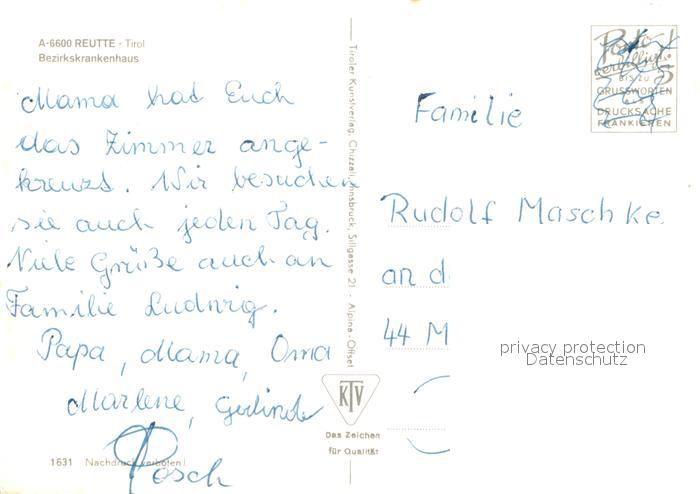 A-6600 REUTTE - Tirol
Bezirkskrankenhaus
Mama hat Euch
das Zimmer ange-
kreuzt. Wir besuchen
sie auch jeden Tag.
Viele Grüße auch an
Familie Ludwig.
Papa, Mama, Oma
Marlene, Gerlinde
Posch
1631 Nachdruck verboten!
Tiroler Kunstverlag, Chizzali, Innsbruck, Sillgasse 21 - Alpina-Offset
KTV
Das Zeichen
für Qualität
Porto
verbilligt
BIS ZU 5
GRUSSWORTEN
ALS
DRUCKSACHE
FRANKIEREN
Familie
Rudolf Maschke
an d
44 M
privacy protection
Datenschutz